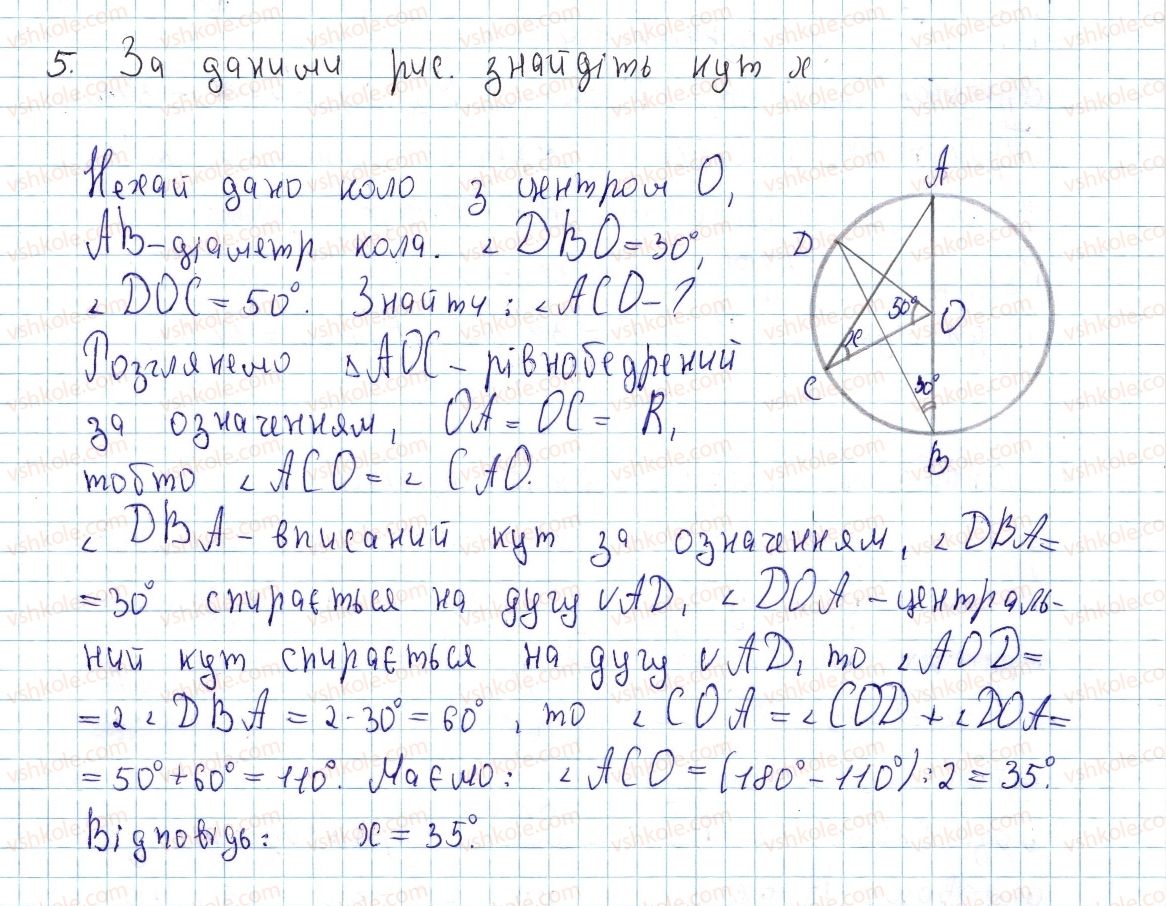 5. За даними рис. знайдіть кут x
Нехай дано коло з центром O,
AB-діаметр кола. ∠DBO=30°,
∠DOC=50°. Знайти: ∠ACO-?
Розглянемо ΔAOC-рівнобедрений
за означенням, OA=OC=R,
тобто ∠ACO=∠CAO.
∠DBA-вписаний кут за означенням, ∠DBA=
=30° спирається на дугу ∪AD, ∠DOA-централь-
ний кут спирається на дугу ∪AD, то ∠AOD=
=2∠DBA=2·30°=60°, то ∠COA=∠COD+∠DOA=
=50°+60°=110°. Маємо: ∠ACO=(180°-110°):2=35°.
Відповідь: x=35°.
A
D
50°
O
x
C
30°
B
vshkole.com